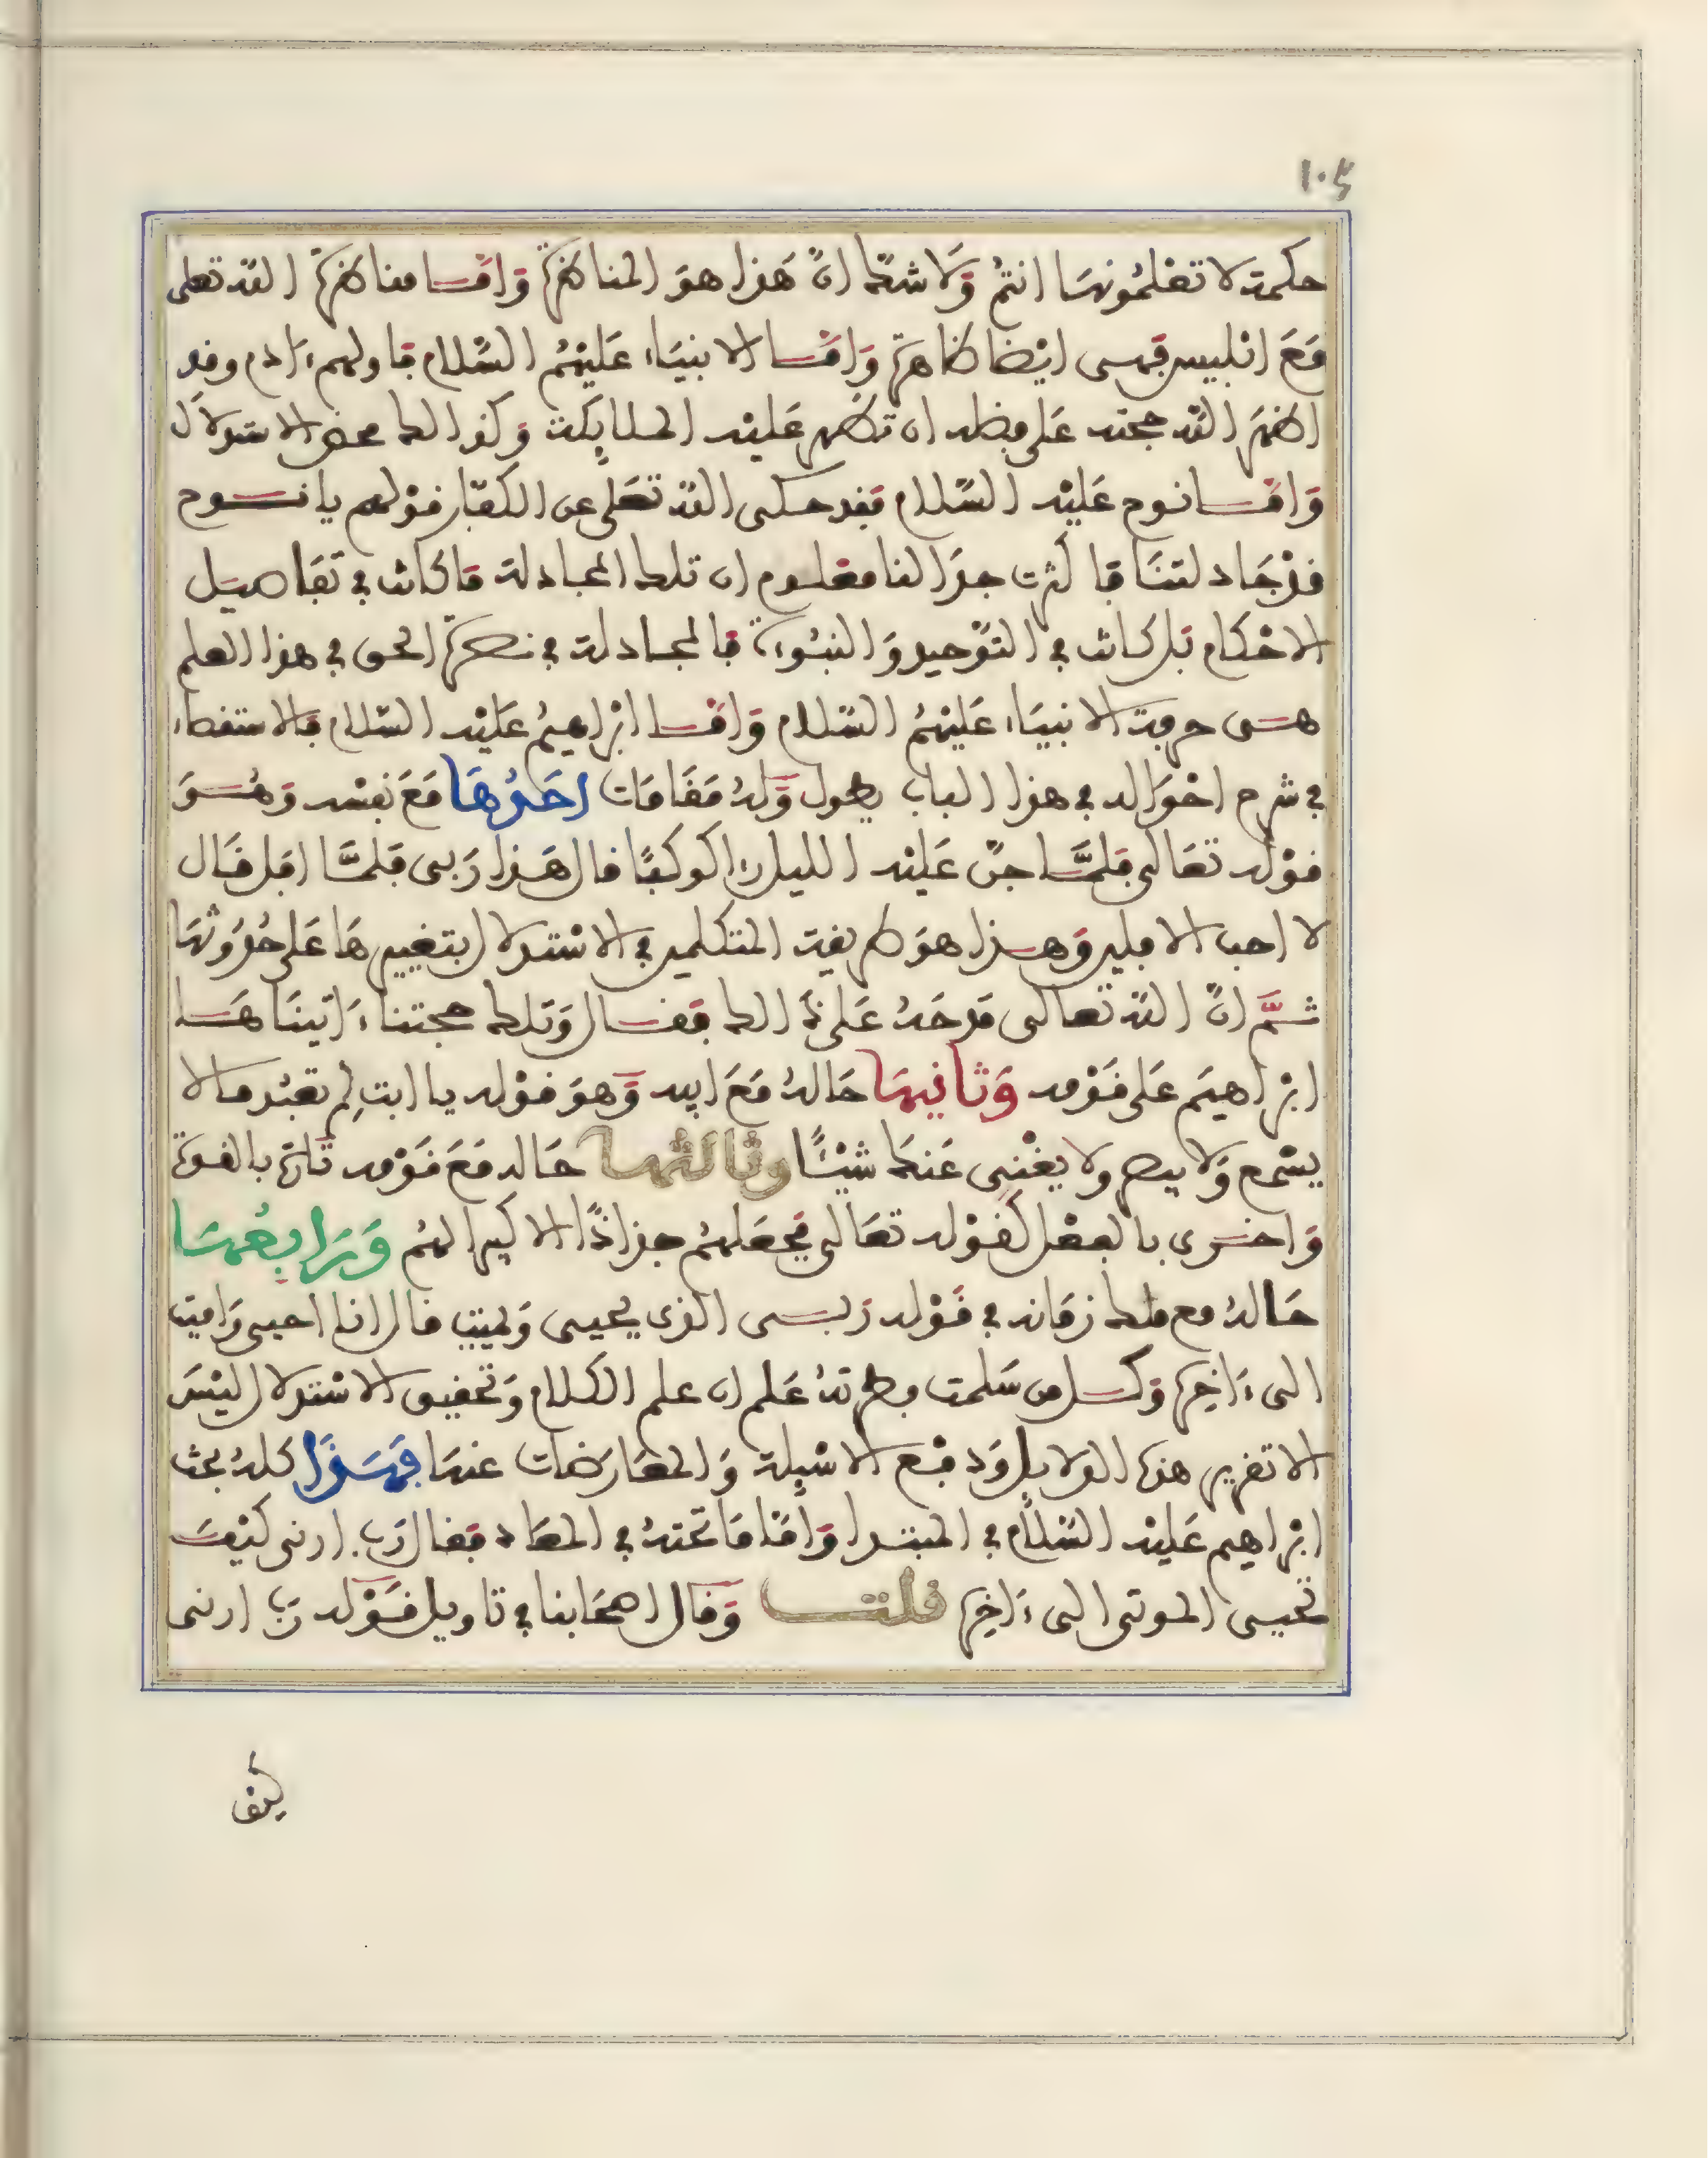 ١٠٤
حكمة لا تعلمونها انتم ولا شك ان هذا هو المناظرة واما مناظرة الله تعلى
مع ابليس فهي ايضا ظاهرة واما الانبياء عليهم السلام فاولهم ءادم وقد
اظهر الله حجته على فضله ان تظهر عليه الملايكة وكذالك محض الاستدلال
واما نوح عليه السلام فقد حكى الله تعلى عن الكفار قولهم يا نوح
قد جادلتنا فاكثرت جدالنا معلوم ان تلك المجادلة ما كانت في تفاصيل
الاحكام بل كانت في التوحيد والنبوءة فالمجادلة في نصرة الحق في هذا العلم
هي حرفة الانبياء عليهم السلام واما ابراهيم عليه السلام فالاستقصاء
في شرح احواله في هذا الباب يطول وله مقامات احدها مع نفسه وهو
قوله تعالى فلما جن عليه الليل رءا كوكبا قال هذا ربي فلما افل قال
لا احب الافلين وهذا هو طريقة المتكلمين في الاستدلال بتغييرها على حدوثها
ثم ان الله تعالى مدحه على ذالك فقال وتلك حجتنا ءاتيناها
ابراهيم على قومه وثانيها حاله مع ابيه وهو قوله يا ابت لم تعبد ما لا
يسمع ولا يبصر ولا يغني عنك شيئا وثالثها حاله مع قومه تارة بالقوة
واخرى بالفعل كقوله تعالى فجعلهم جذاذا الا كبيرا لهم ورابعها
حاله مع ملك زمانه في قوله ربي الذي يحيي ويميت قال انا احيي واميت
الى ءاخره وكل من سلمت فطرته علم ان علم الكلام وتحقيق الاستدلال ليس
الا تقرير هذه الدلايل ودفع الاسيلة والمعارضات عنها فهذا كله بحث
ابراهيم عليه السلام في المبتدا واما ما تحته في المعاد فقال رب ارني كيف
تحيي الموتى الى ءاخره قلت وقال اصحابنا في تاويل قوله رب ارني
كيف